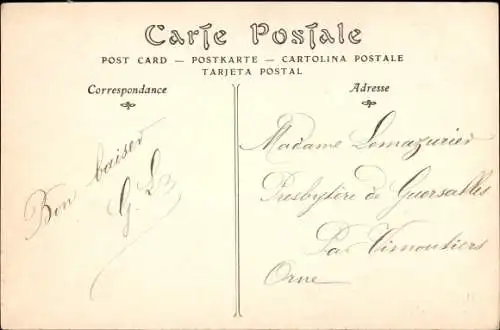 Carte Postale
POST CARD — POSTKARTE — CARTOLINA POSTALE
TARJETA POSTAL
Correspondance
Adresse
Bon baiser
G. L.
Madame Lemazurier
Presbytère de Guerquesalles
Par Vimoutiers
Orne